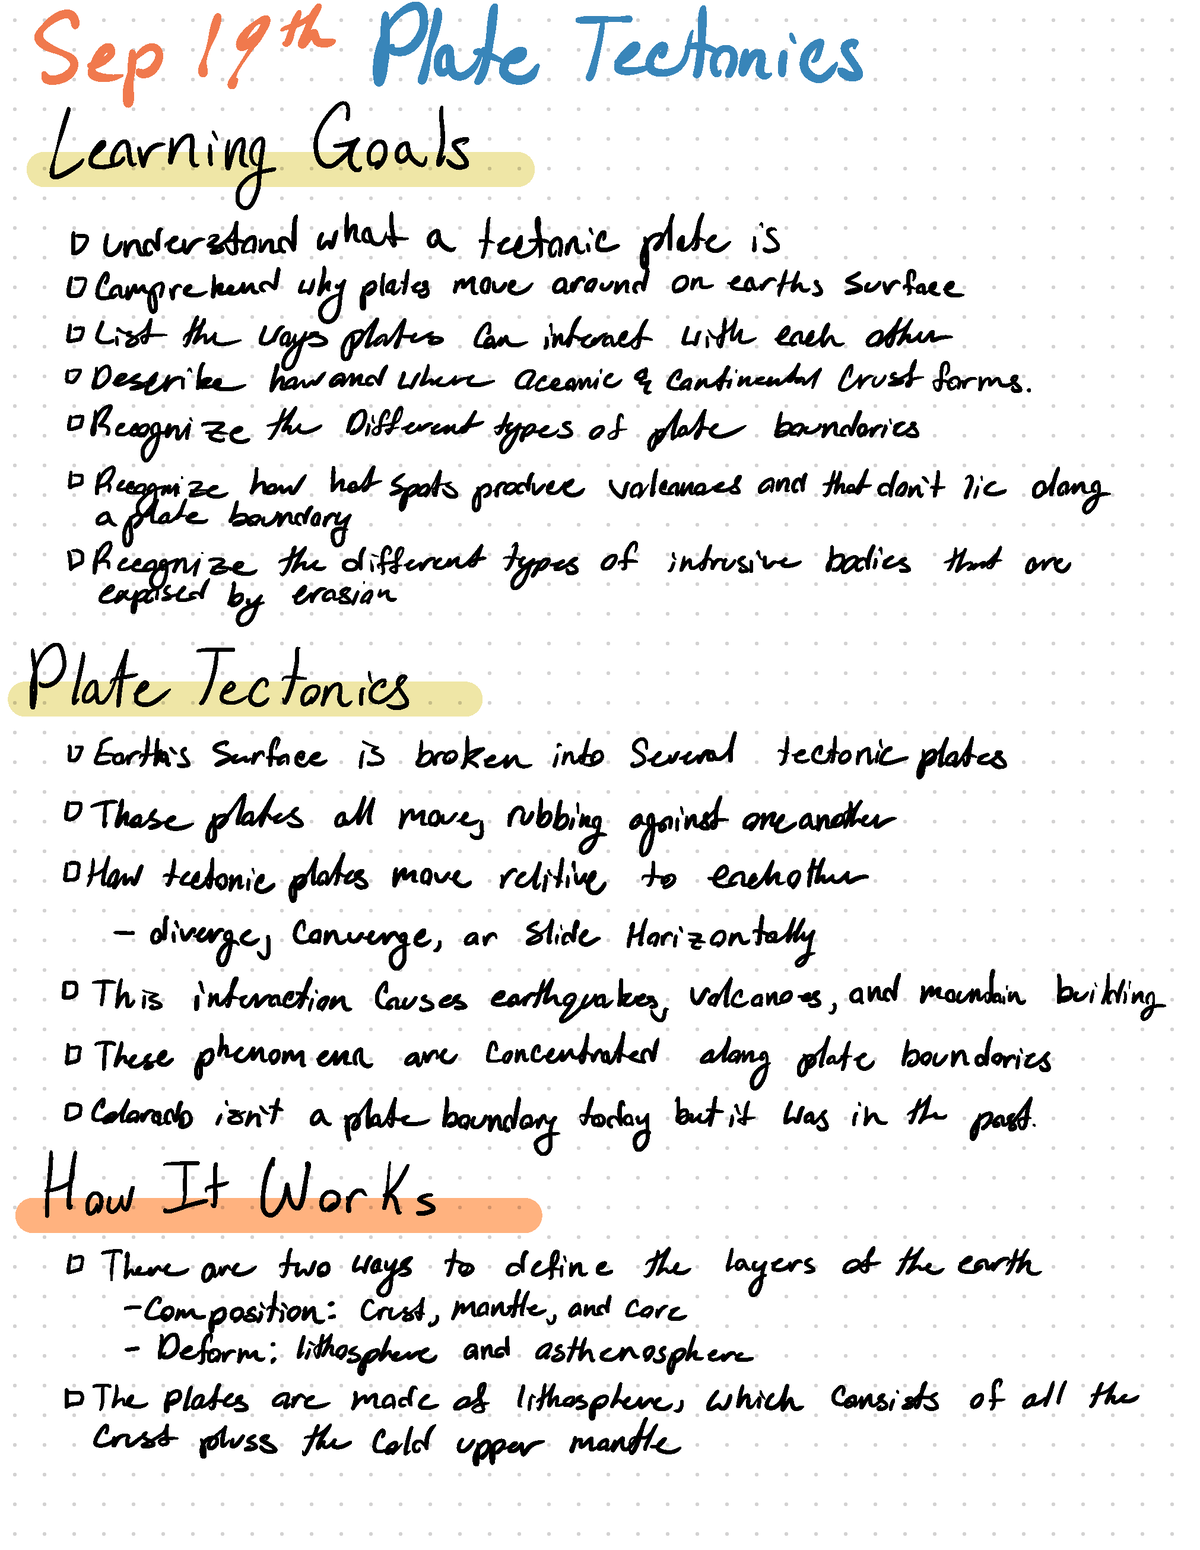 Sep 19th Plate Tectonics
Learning Goals
understand what a tectonic plate is
Comprehend why plates move around on earths surface
List the ways plates can interact with each other
Describe how and where oceanic & continental crust forms.
Recognize the Different types of plate boundaries
Recognize how hot spots produce volcanoes and that don't lie along
a plate boundary
Recognize the different types of intrusive bodies that are
exposed by erosion
Plate Tectonics
Earth's Surface is broken into Several tectonic plates
These plates all move, rubbing against one another
How tectonic plates move relitive to eachother
- diverge, Converge, or Slide Horizontally
This interaction causes earthquakes, volcanoes, and mountain building
These phenomena are concentrated along plate boundaries
Colorado isn't a plate boundary today but it was in the past.
How It Works
There are two ways to define the layers of the earth
- Composition: Crust, mantle, and core
- Deform: lithosphere and asthenosphere
The plates are made of lithosphere, which consists of all the
Crust pluss the Cold upper mantle